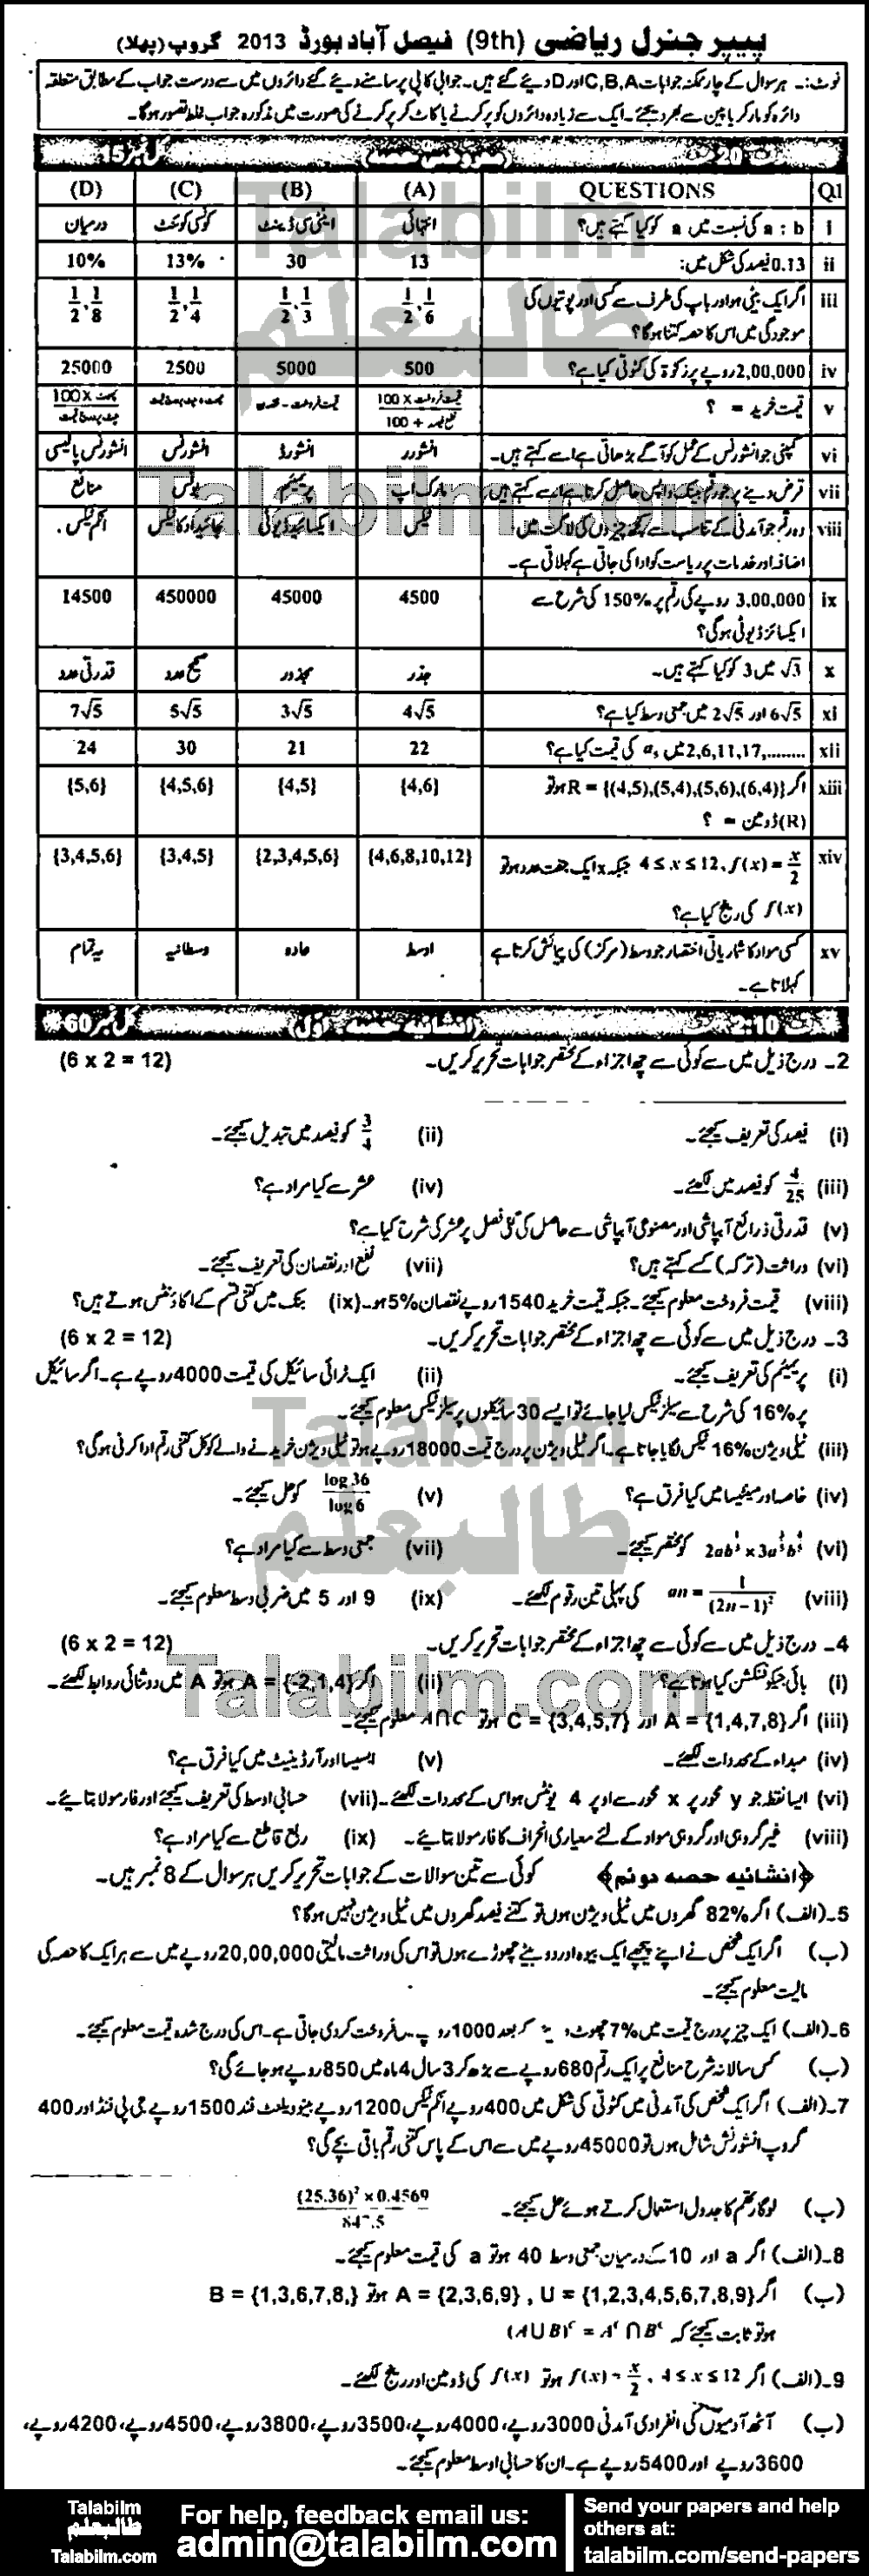 پیپر جنرل ریاضی (9th) فیصل آباد بورڈ 2013 گروپ (پہلا)
نوٹ:۔ ہر سوال کے چار ممکنہ جوابات C,B,A اور D دیئے گئے ہیں۔ جوابی کاپی پر سامنے دیئے گئے دائروں میں سے درست جواب کے مطابق متعلقہ
دائرہ کو مارکر یا پین سے بھر دیجئے۔ ایک سے زیادہ دائروں کو پر کرنے یا کاٹ کر پر کرنے کی صورت میں مذکورہ جواب غلط تصور ہوگا۔
20 (معروضی حصہ) کل نمبر 15
Q1 QUESTIONS (A) (B) (C) (D)
i a : b کی نسبت میں a کو کیا کہتے ہیں؟ انتہائی اینٹی سی ڈینٹ کونسی کوئنٹ درمیان
ii 0.13 فیصد کی شکل میں: 13 30 13% 10%
iii اگر ایک بیٹی ہو اور باپ کی طرف سے کسی اور پوتیوں کی 1/2, 1/6 1/2, 1/3 1/2, 1/4 1/2, 1/8
موجودگی میں اس کا حصہ کتنا ہوگا؟
iv 2,00,000 روپے پر زکوۃ کی کٹوتی کیا ہے؟ 500 5000 2500 25000
v قیمت خرید = ؟ قیمت فروخت × 100 / نفع فیصد + 100
vi کمپنی جو انشورنس کے عمل کو آگے بڑھاتی ہے اسے کہتے ہیں۔ انشورر انشورڈ انشورنس انشورنس پالیسی
vii قرض دینے پر جو رقم بینک واپس حاصل کرتا ہے اسے کہتے ہیں مارک اپ پریمیئم بونس منافع
viii وہ رقم جو آمدنی کے تناسب سے یا کچھ چیزوں کی لاگت میں: ٹیکس ایکسائیز ڈیوٹی جائیداد کا ٹیکس انکم ٹیکس۔
اضافہ اور خدمات پر ریاست کو ادا کی جاتی ہے کہلاتی ہے۔
ix 3,00,000 روپے کی رقم پر 150% کی شرح سے 4500 45000 450000 14500
ایکسائزڈ یوٹی ہوگی؟
x √3 میں 3 کو کیا کہتے ہیں۔ جذر مجذور صحیح عدد قدرتی عدد
xi 6√5 اور 2√5 میں جمعی وسط کیا ہے؟ 4√5 3√5 5√5 7√5
xii 2,6,11,17,......... میں a₅ کی قیمت کیا ہے؟ 22 21 30 24
xiii اگر R = {(4,5),(5,4),(5,6),(6,4)} ہو تو {4,6} {4,5} {4,5,6} {5,6}
(R) ڈومین = ؟
xiv f(x) = x/2 ، 4 ≤ x ≤ 12 جبکہ x ایک جفت عدد ہو تو {4,6,8,10,12} {2,3,4,5,6} {3,4,5} {3,4,5,6}
f(x) کی رینج کیا ہے؟
xv کسی مواد کا شماریاتی اختصار جو وسط (مرکز) کی پیمائش کرتا ہے اوسط عادہ وسطانیہ یہ تمام
کہلاتا ہے۔
2:10 (انشائیہ حصہ اوّل) کل نمبر 60
2۔ درج ذیل میں سے کوئی سے چھ اجزاء کے مختصر جوابات تحریر کریں۔ (6 x 2 = 12)
(i) فیصد کی تعریف کیجئے۔ (ii) 3/4 کو فیصد میں تبدیل کیجئے۔
(iii) 4/25 کو فیصد میں لکھئے۔ (iv) عشر سے کیا مراد ہے؟
(v) قدرتی ذرائع آبپاشی اور مصنوعی آبپاشی سے حاصل کی گئی فصل پر عشر کی شرح کیا ہے؟
(vi) وراثت (ترکہ) کسے کہتے ہیں؟ (vii) نفع اور نقصان کی تعریف کیجئے۔
(viii) قیمت فروخت معلوم کیجئے۔ جبکہ قیمت خرید 1540 روپے نقصان 5% ہو۔ (ix) بنک میں کتنی قسم کے اکاؤنٹس ہوتے ہیں؟
3۔ درج ذیل میں سے کوئی سے چھ اجزاء کے مختصر جوابات تحریر کریں۔ (6 x 2 = 12)
(i) پریمیئم کی تعریف کیجئے۔ (ii) ایک ٹرائی سائیکل کی قیمت 4000 روپے ہے۔ اگر سائیکل
پر 16% کی شرح سے سیلز ٹیکس لیا جائے تو ایسے 30 سائیکلوں پر سیلز ٹیکس معلوم کیجئے۔
(iii) ٹیلی ویژن 16% ٹیکس لگایا جاتا ہے۔ اگر ٹیلی ویژن پر درج قیمت 18000 روپے ہو تو ٹیلی ویژن خریدنے والے کو کل کتنی رقم ادا کرنی ہوگی؟
(iv) خاصہ اور مینٹیسا میں کیا فرق ہے؟ (v) log 36 / log 6 کو حل کیجئے۔
(vi) کو مختصر کیجئے۔ (vii) جمعی وسط سے کیا مراد ہے؟
(viii) an = 1/(2n−1)² کی پہلی تین رقوم لکھئے۔ (ix) 9 اور 5 میں ضربی وسط معلوم کیجئے۔
4۔ درج ذیل میں سے کوئی سے چھ اجزاء کے مختصر جوابات تحریر کریں۔ (6 x 2 = 12)
(i) بائی جیکٹو فنکشن کیا ہوتا ہے؟ (ii) اگر A = {-2,1,4} ہو تو A میں دو ثنائی روابط لکھئے۔
(iii) اگر A = {1,4,7,8} اور C = {3,4,5,7} ہو تو A∩C معلوم کیجئے۔
(iv) مبداء کے محددات لکھئے۔ (v) ایبسیسا اور آرڈینیٹ میں کیا فرق ہے؟
(vi) ایسا نقطہ جو y محور پر x محور سے اوپر 4 یونٹس ہو اس کے محددات لکھئے۔ (vii) حسابی اوسط کی تعریف کیجئے اور فارمولا بتائیے۔
(viii) غیر گروہی اور گروہی مواد کے لئے معیاری انحراف کا فارمولا بتائیے۔ (ix) ربع قاطع سے کیا مراد ہے؟
﴿انشائیہ حصہ دوئم﴾ کوئی سے تین سوالات کے جوابات تحریر کریں ہر سوال کے 8 نمبر ہیں۔
5۔(الف) اگر 82% گھروں میں ٹیلی ویژن ہوں تو کتنے فیصد گھروں میں ٹیلی ویژن نہیں ہوگا؟
(ب) اگر ایک شخص نے اپنے پیچھے ایک بیوہ اور دو بیٹے چھوڑے ہوں تو اس کی وراثت مالیتی 20,00,000 روپے میں سے ہر ایک کا حصہ کی
مالیت معلوم کیجئے۔
6۔(الف) ایک چیز پر درج قیمت میں 7% چھوٹ کے بعد 1000 روپے میں فروخت کر دی جاتی ہے۔ اس کی درج شدہ قیمت معلوم کیجئے۔
(ب) کس سالانہ شرح منافع پر ایک رقم 680 روپے سے بڑھ کر 3 سال 4 ماہ میں 850 روپے ہو جائے گی؟
7۔(الف) اگر ایک شخص کی آمدنی میں کٹوتی کی شکل میں 400 روپے انکم ٹیکس 1200 روپے بینوویلنٹ فنڈ 1500 روپے جی پی فنڈ اور 400
گروپ انشورنش شامل ہوں تو 45000 روپے میں سے اس کے پاس کتنی رقم باقی بچے گی؟
(ب) لوگارتھم کا جدول استعمال کرتے ہوئے حل کیجئے۔ (25.36)² × 0.4569 / 847.5
8۔(الف) اگر a اور 10 کے درمیان جمعی وسط 40 ہو تو a کی قیمت معلوم کیجئے۔
(ب) اگر U = {1,2,3,4,5,6,7,8,9} , A = {2,3,6,9} ہو تو B = {1,3,6,7,8,}
ہو تو ثابت کیجئے کہ (A∪B)ᶜ = Aᶜ ∩ Bᶜ
9۔(الف) اگر 4 ≤ x ≤ 12 ، f(x) = x/2 ہو تو f(x) کی ڈومین اور رینج لکھئے۔
(ب) آٹھ آدمیوں کی انفرادی آمدنی 3000 روپے، 4000 روپے، 3500 روپے، 3800 روپے، 4500 روپے، 4200 روپے،
3600 روپے اور 5400 روپے ہے۔ ان کا حسابی اوسط معلوم کیجئے۔
Talabilm
طالبعلم
Talabilm.com
Talabilm
طالبعلم
Talabilm.com
Talabilm
طالبعلم
Talabilm.com
For help, feedback email us:
admin@talabilm.com
Send your papers and help
others at:
talabilm.com/send-papers